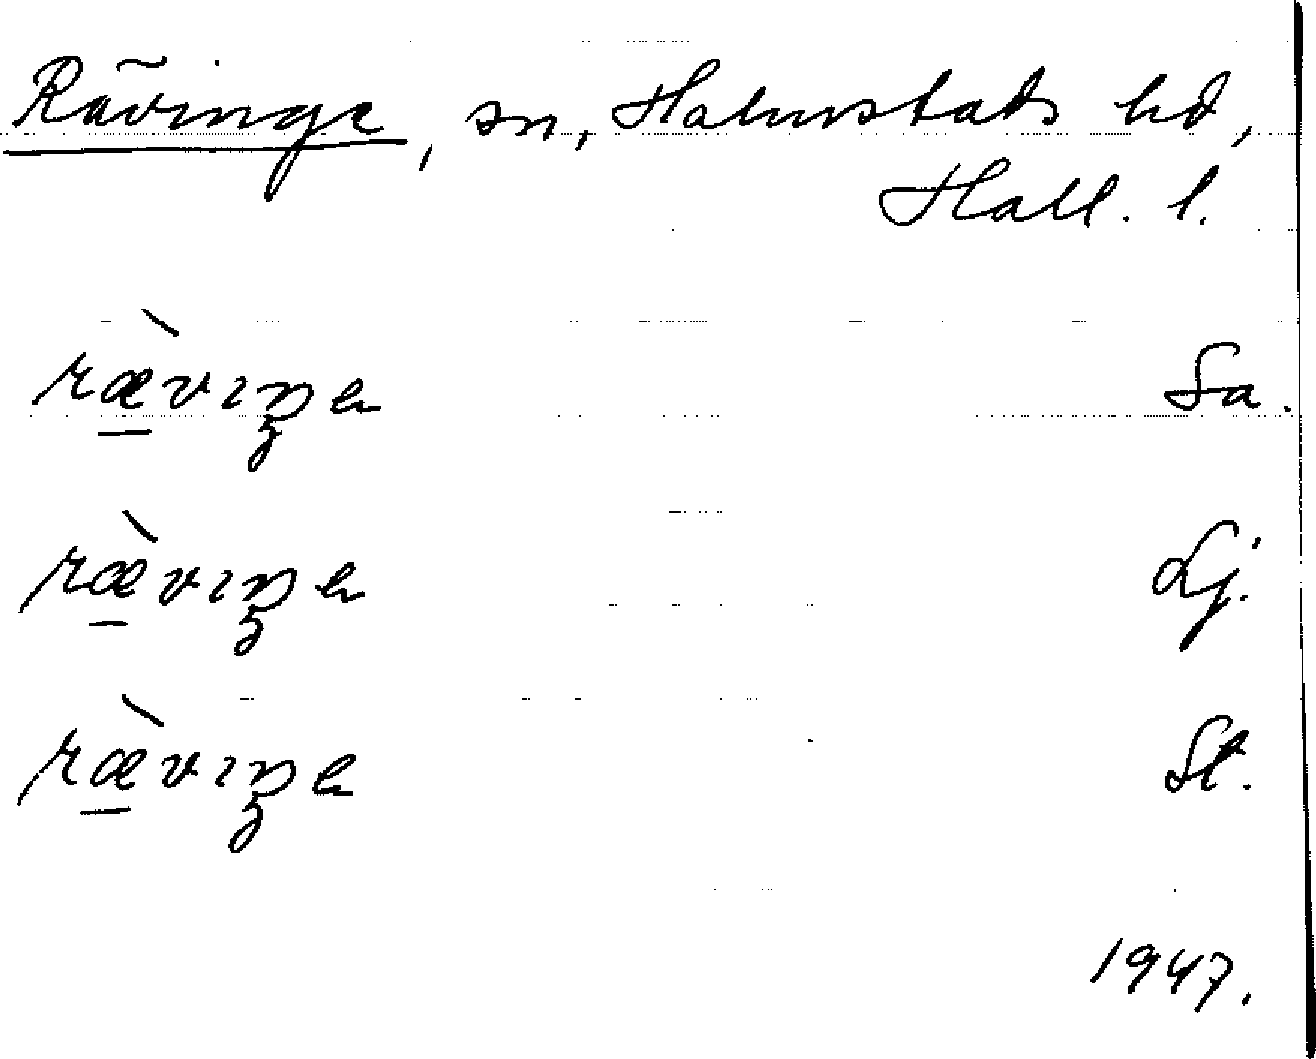 Rävinge, sn, Halmstads hd,
Hall. l.
ræ̲̀vıŋɐ Sa.
ræ̲̀vıŋɐ Lj.
ræ̲̀vıŋɐ St.
1947.